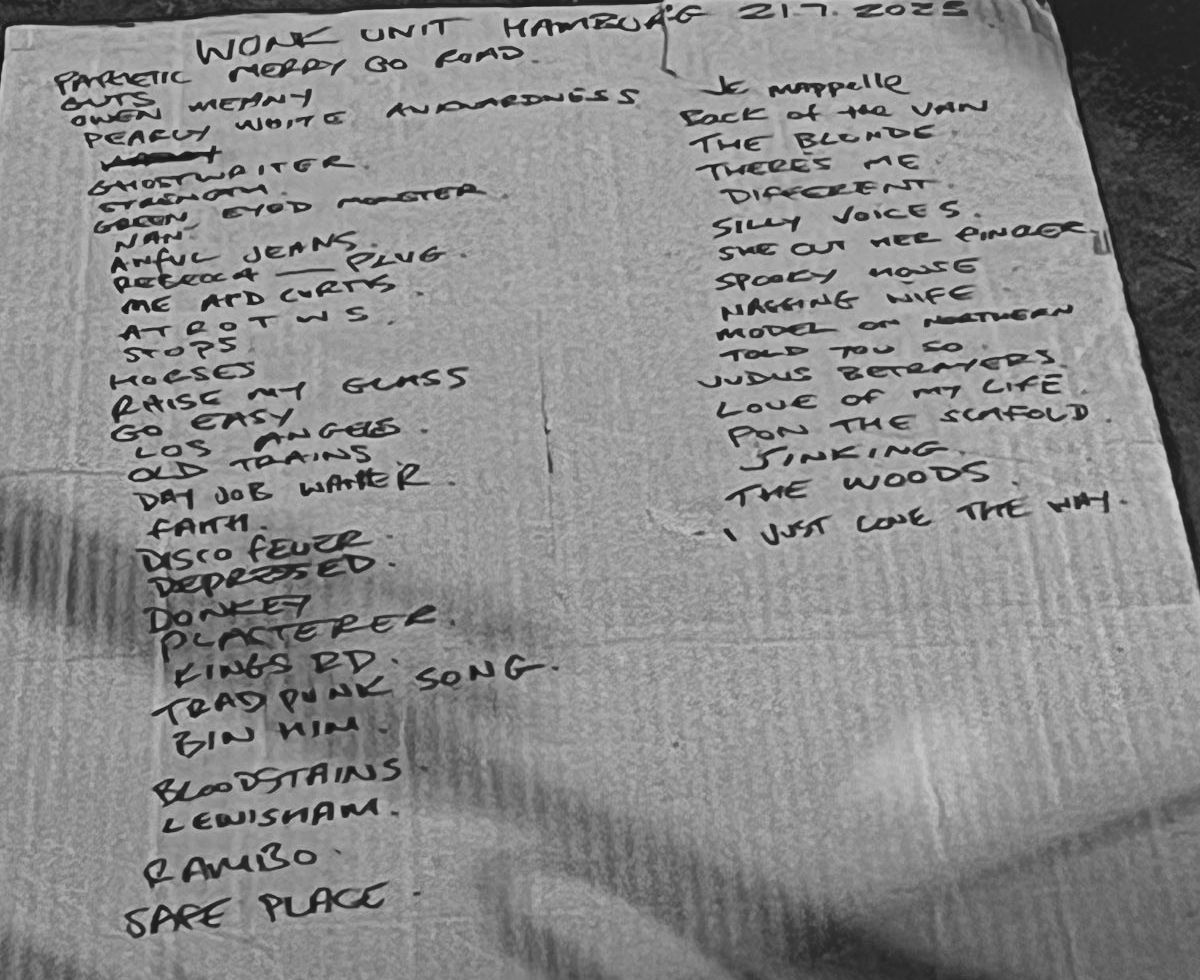 WONK UNIT HAMBURG 21.7.2025
PATHETIC MERRY GO ROAD.
GUTS
OWEN MEANY
PEARLY WHITE AWKWARDNESS
GHOSTWRITER.
STRENGTH.
GREEN EYOD MONSTER.
NAN.
AWFUL JEANS.
REBECCA — PLUG.
ME AND CURTIS.
A T R O T W S.
STOPS
HORSES
RAISE MY GLASS
GO EASY
LOS ANGELES.
OLD TRAINS
DAY JOB WANKER.
FAITH.
DISCO FEVER.
DEPRESSED.
DONKEY
PLASTERER.
KINGS RD.
TRAD PUNK SONG.
BIN HIM.
BLOODSTAINS.
LEWISHAM.
RAMBO.
SAFE PLACE.
JE MAPPELLE
BACK of the VAN
THE BLONDE.
THERE'S ME.
DIFFERENT.
SILLY VOICES.
SHE CUT HER FINGER.
SPOOKY HOUSE
NAGGING WIFE.
MODEL ON NORTHERN
TOLD YOU SO.
JUDUS BETRAYERS.
LOVE OF MY LIFE.
PON THE SCAFOLD.
SINKING.
THE WOODS.
I JUST LOVE THE WAY.